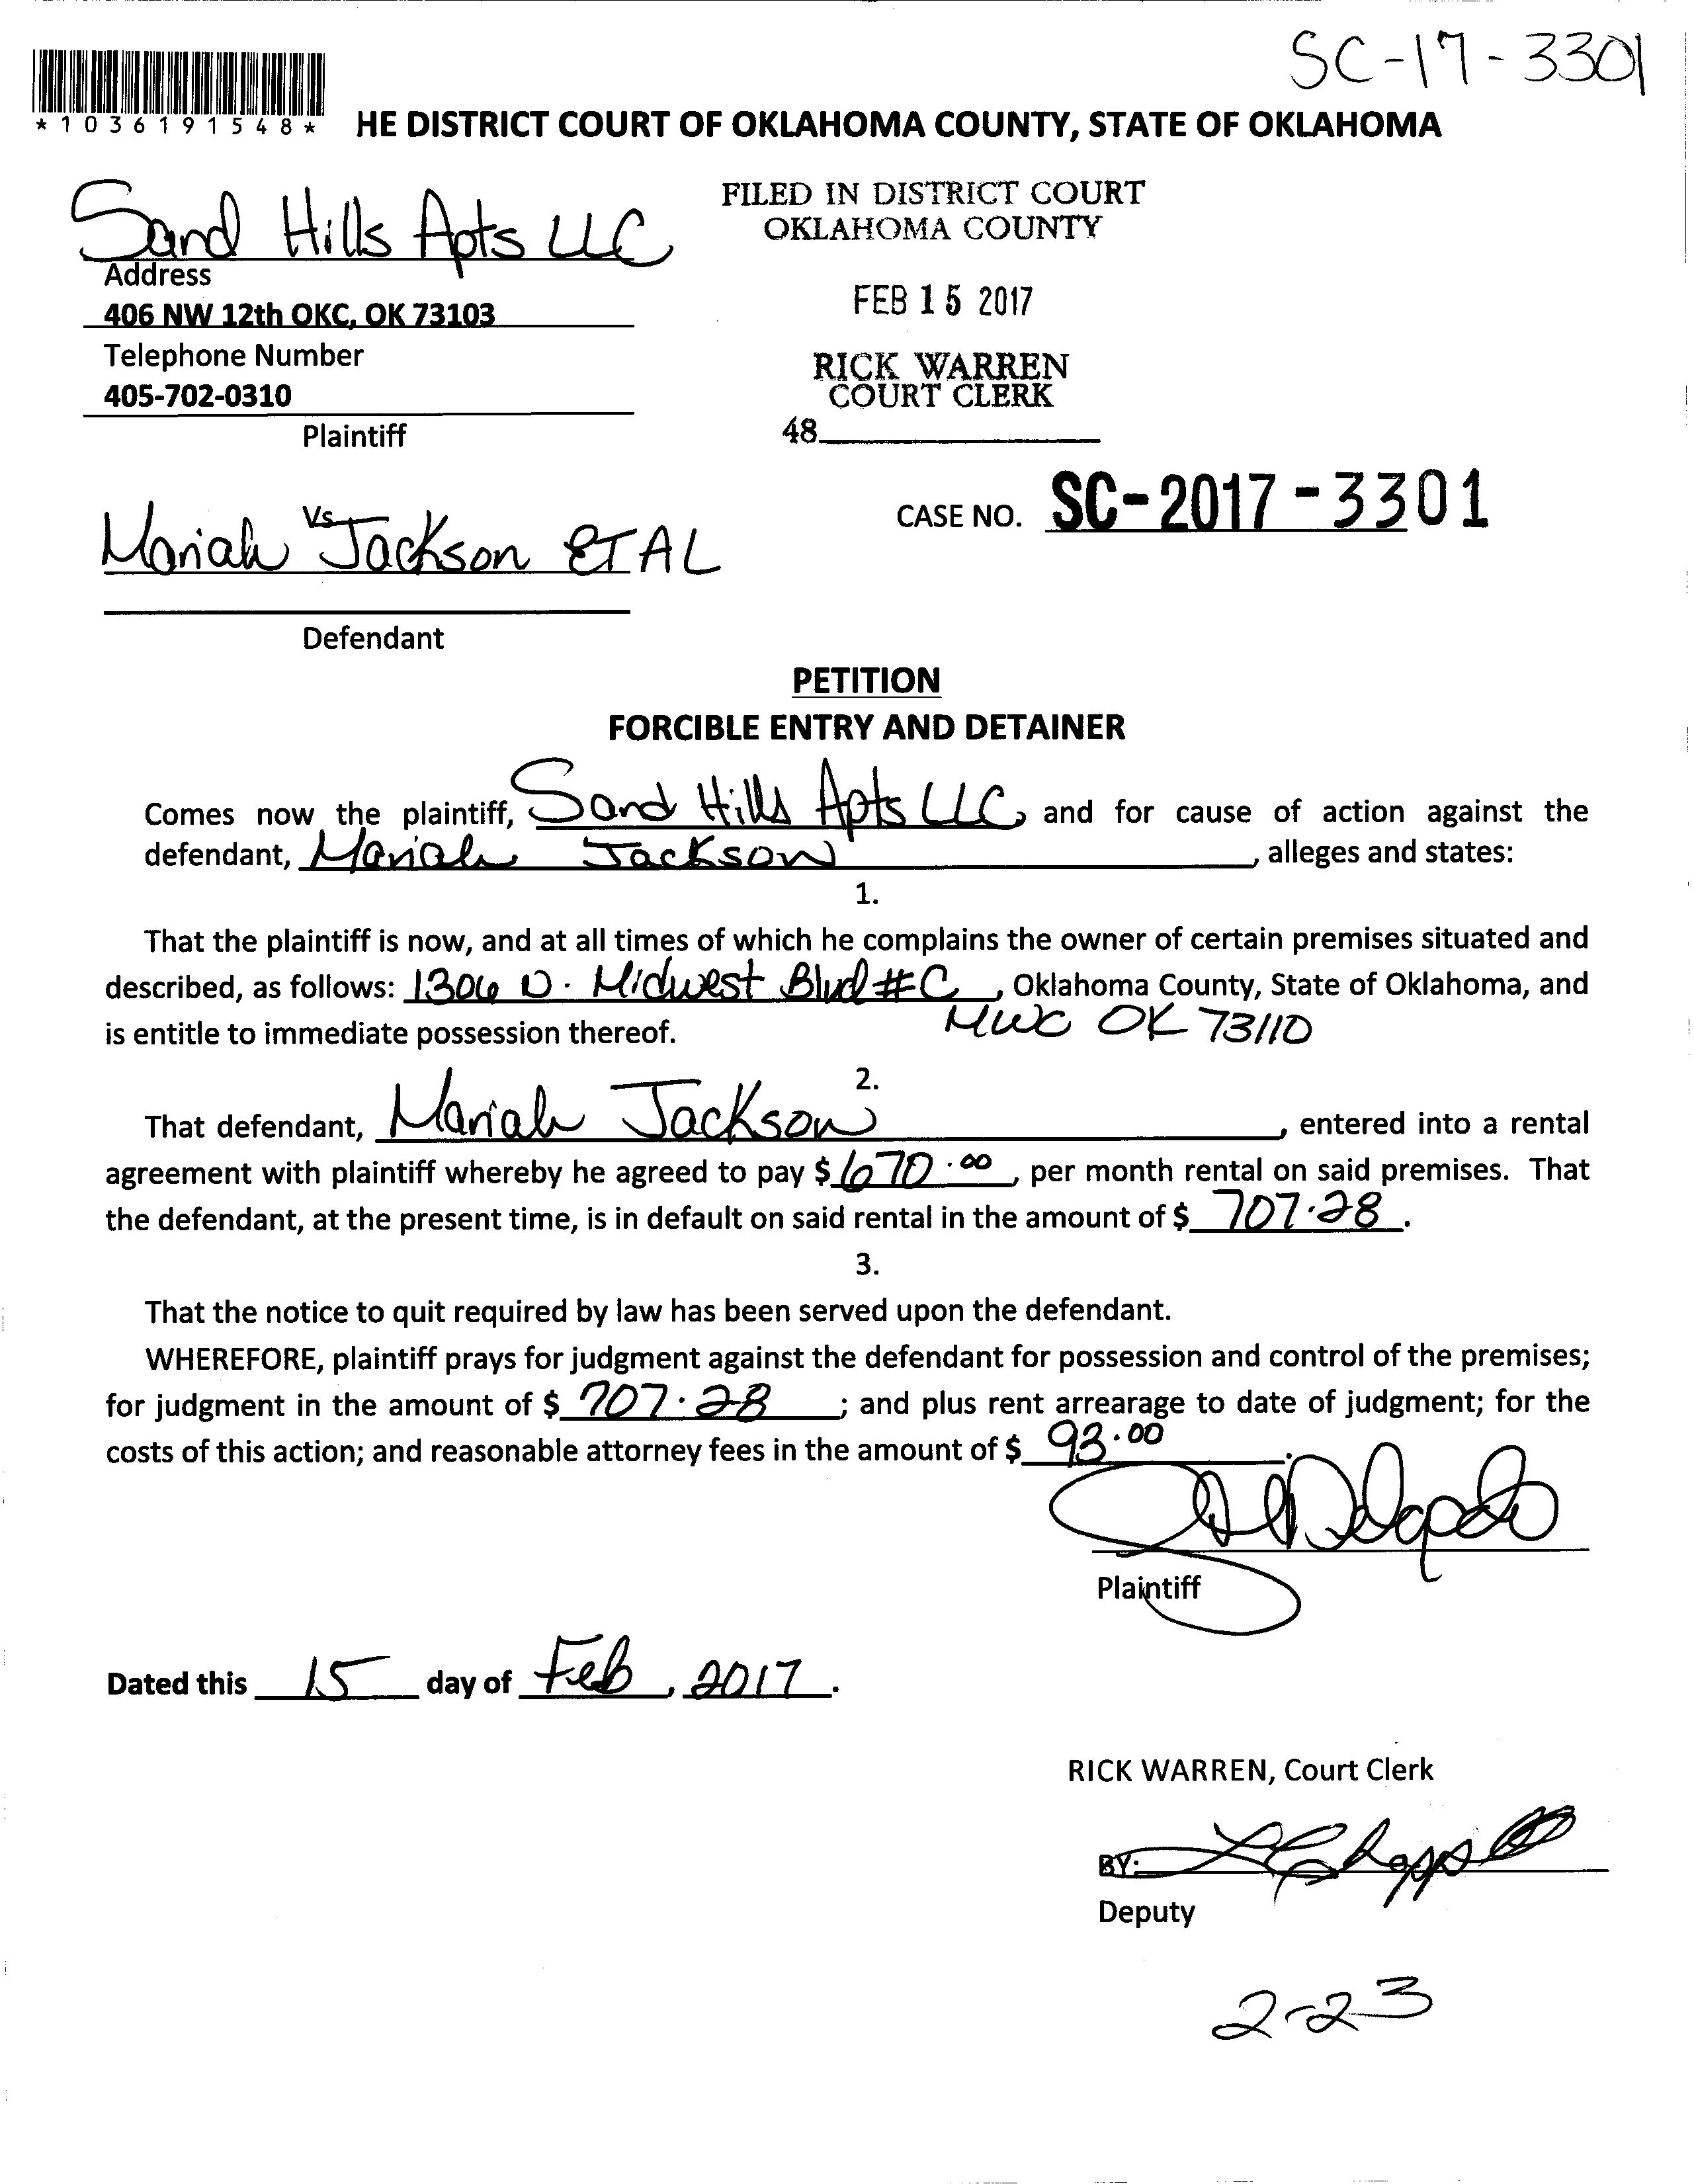 SC-17-3301
*1036191548*
HE DISTRICT COURT OF OKLAHOMA COUNTY, STATE OF OKLAHOMA
Sand Hills Apts LLC
Address
406 NW 12th OKC, OK 73103
Telephone Number
405-702-0310
Plaintiff
FILED IN DISTRICT COURT
OKLAHOMA COUNTY
FEB 15 2017
RICK WARREN
COURT CLERK
48
Vs
Mariah Jackson ET AL
Defendant
CASE NO. SC-2017-3301
PETITION
FORCIBLE ENTRY AND DETAINER
Comes now the plaintiff, Sand Hills Apts LLC, and for cause of action against the
defendant, Mariah Jackson, alleges and states:
1.
That the plaintiff is now, and at all times of which he complains the owner of certain premises situated and
described, as follows: 1306 N. Midwest Blvd #C, Oklahoma County, State of Oklahoma, and
is entitle to immediate possession thereof. MWC OK 73110
2.
That defendant, Mariah Jackson, entered into a rental
agreement with plaintiff whereby he agreed to pay $ 670.00, per month rental on said premises. That
the defendant, at the present time, is in default on said rental in the amount of $ 707.28.
3.
That the notice to quit required by law has been served upon the defendant.
WHEREFORE, plaintiff prays for judgment against the defendant for possession and control of the premises;
for judgment in the amount of $ 707.28; and plus rent arrearage to date of judgment; for the
costs of this action; and reasonable attorney fees in the amount of $ 93.00.
Delgado
Plaintiff
Dated this 15 day of Feb, 2017.
RICK WARREN, Court Clerk
BY:
Deputy
2-23